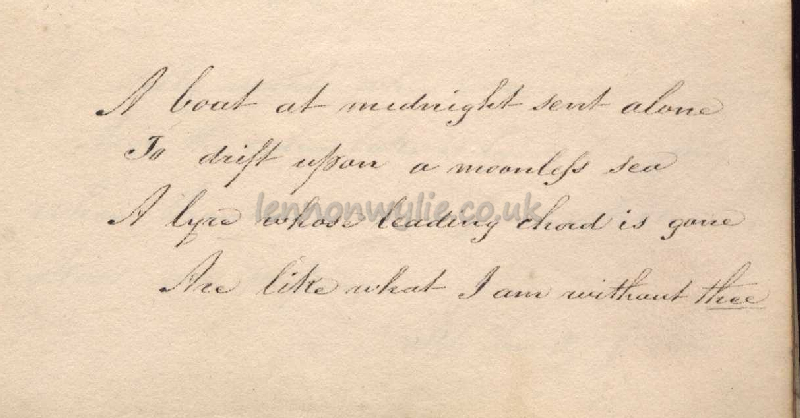 A boat at midnight sent alone
To drift upon a moonless sea
lennonwylie.co.uk
A lyre whose leading chord is gone
Are like what I am without thee